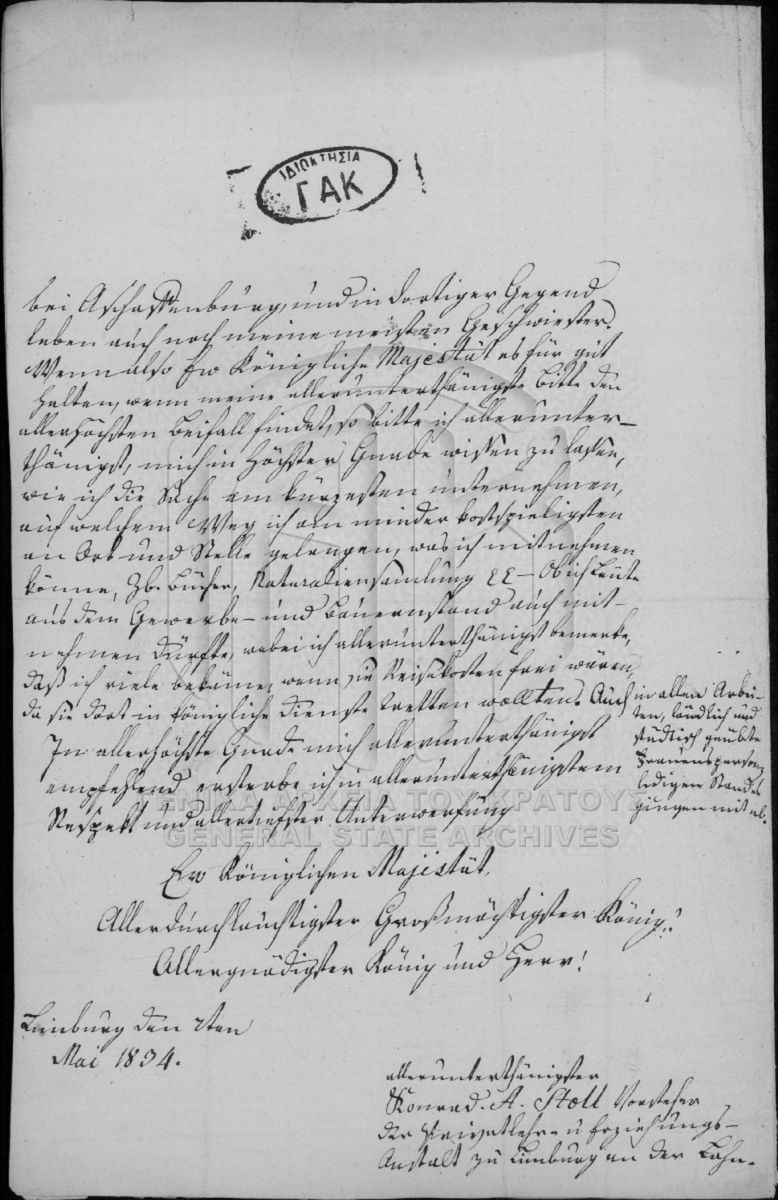 ΙΔΙΟΚΤΗΣΙΑ
ΓΑΚ
bei Aschaffenburg, und in dortiger Gegend
leben auch noch meine meisten Geschwister.
Wenn also Ew Königliche Majestät es für gut
halten, wenn meine allerunterthänigste Bitte den
allerhöchsten Beifall findet, so bitte ich allerunter-
thänigst, mich in höchster Gnade wissen zu lassen,
wie ich die Sache am kürzesten unternehmen,
auf welchem Weg ich am minder kostspieligsten
an Ort und Stelle gelangen, was ich mitnehmen
könne, Zb. Bücher, Naturaliensamlung – Ob ich Leute
aus dem Gewerbe- und Bauernstand auch mit-
nehmen dürfte, wobei ich allerunterthänigst bemerke,
daß ich viele bekäme, wenn sie Reisekosten frei wären
da sie dort in königliche Dienste tretten wollten. Auch
in allen Arbei-
ten, ländlich und
städtisch geübte
Frauenspersonen
ledigen Standes
giengen mit ab.
In allerhöchste Gnade mich allerunterthänigst
empfehlend ersterbe ich in allerunterthänigstem
Respekt und allertiefster Unterwerfung
ΓΕΝΙΚΑ ΑΡΧΕΙΑ ΤΟΥ ΚΡΑΤΟΥΣ
GENERAL STATE ARCHIVES
Ew Königlichen Majestät,
Allerdurchlauchtigster Großmächtigster König!
Allergnädigster König und Herr!
Limburg den 2ten
Mai 1834.
allerunterthänigster
Konrad. A. Stoll Vorsteher
der Privatlehr- u Erziehungs-
Anstalt zu Limburg an der Lahn.